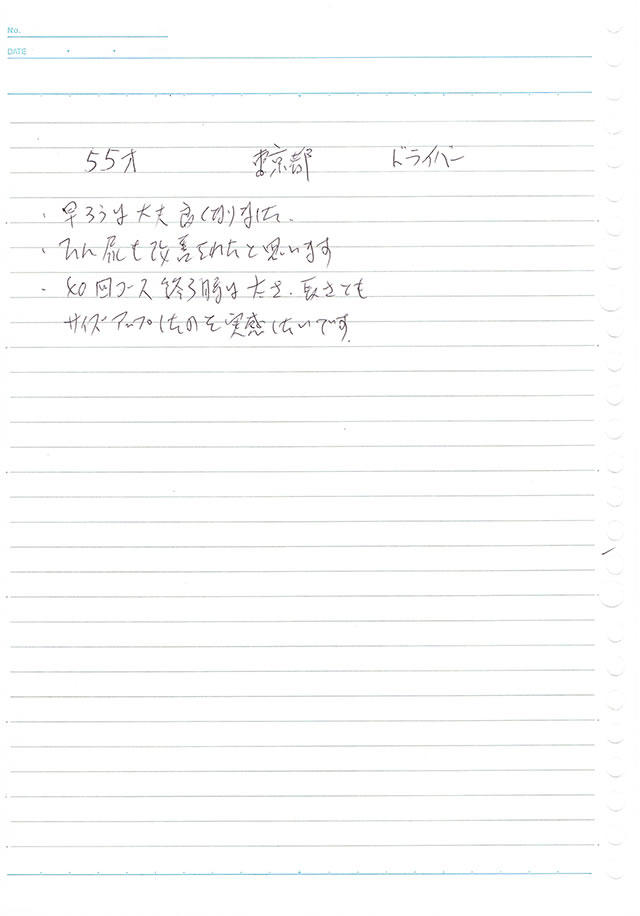 No.
DATE
55才 東京都 ドライバー
・早ろうは大夫良くなりました.
・ひん尿も改善されたと思います
・40回コース終る時は太さ.長さとも
サイズアップしたのを実感したいです.